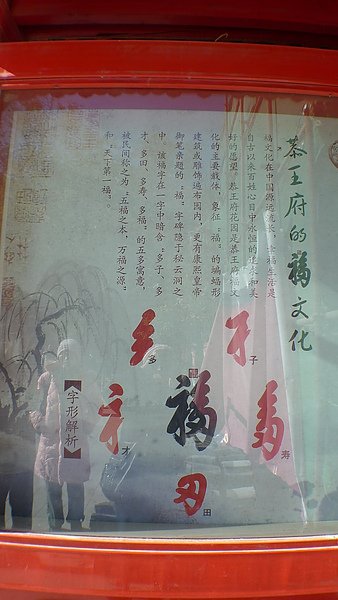 恭王府的福文化
福文化在中国源远流长，幸福生活是
自古以来百姓心目中永恒的追求和美
好的愿望。恭王府花园是恭王府福文
化的主要载体，象征“福”的蝙蝠形
建筑或雕饰遍布园内，更有康熙皇帝
御笔亲题的“福”字碑隐于秘云洞之
中。该福字在一字中暗含“多子、多
才、多田、多寿、多福”的五多寓意，
被民间称之为“五福之本，万福之源”
和“天下第一福”。
子
多
福
寿
才
田
【字形解析】